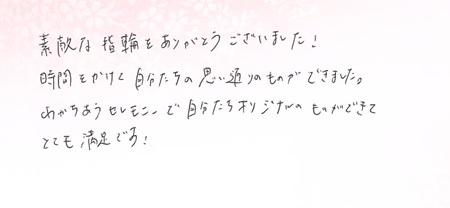 素敵な指輪をありがとうございました!
時間をかけて自分たちの思い通りのものができました。
わかちあうセレモニーで自分たちオリジナルのものができて
とても満足です!